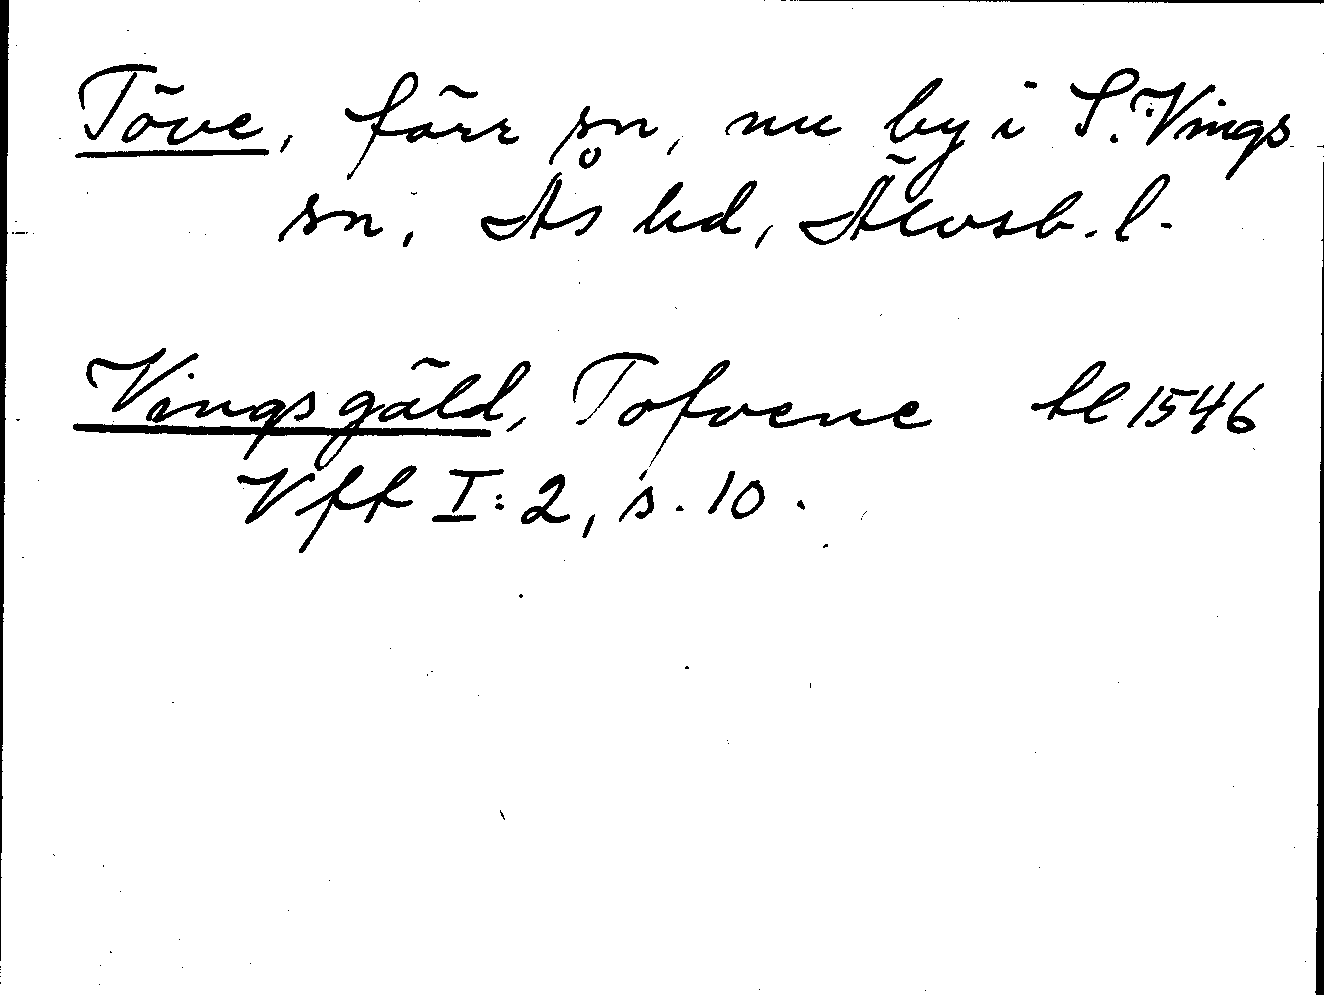 Töve, förr sn, nu by i S. Vings
sn, Ås hd, Älvsb. l.
Vingsgäld, Tofvene tl 1546
Vff I:2, s. 10.